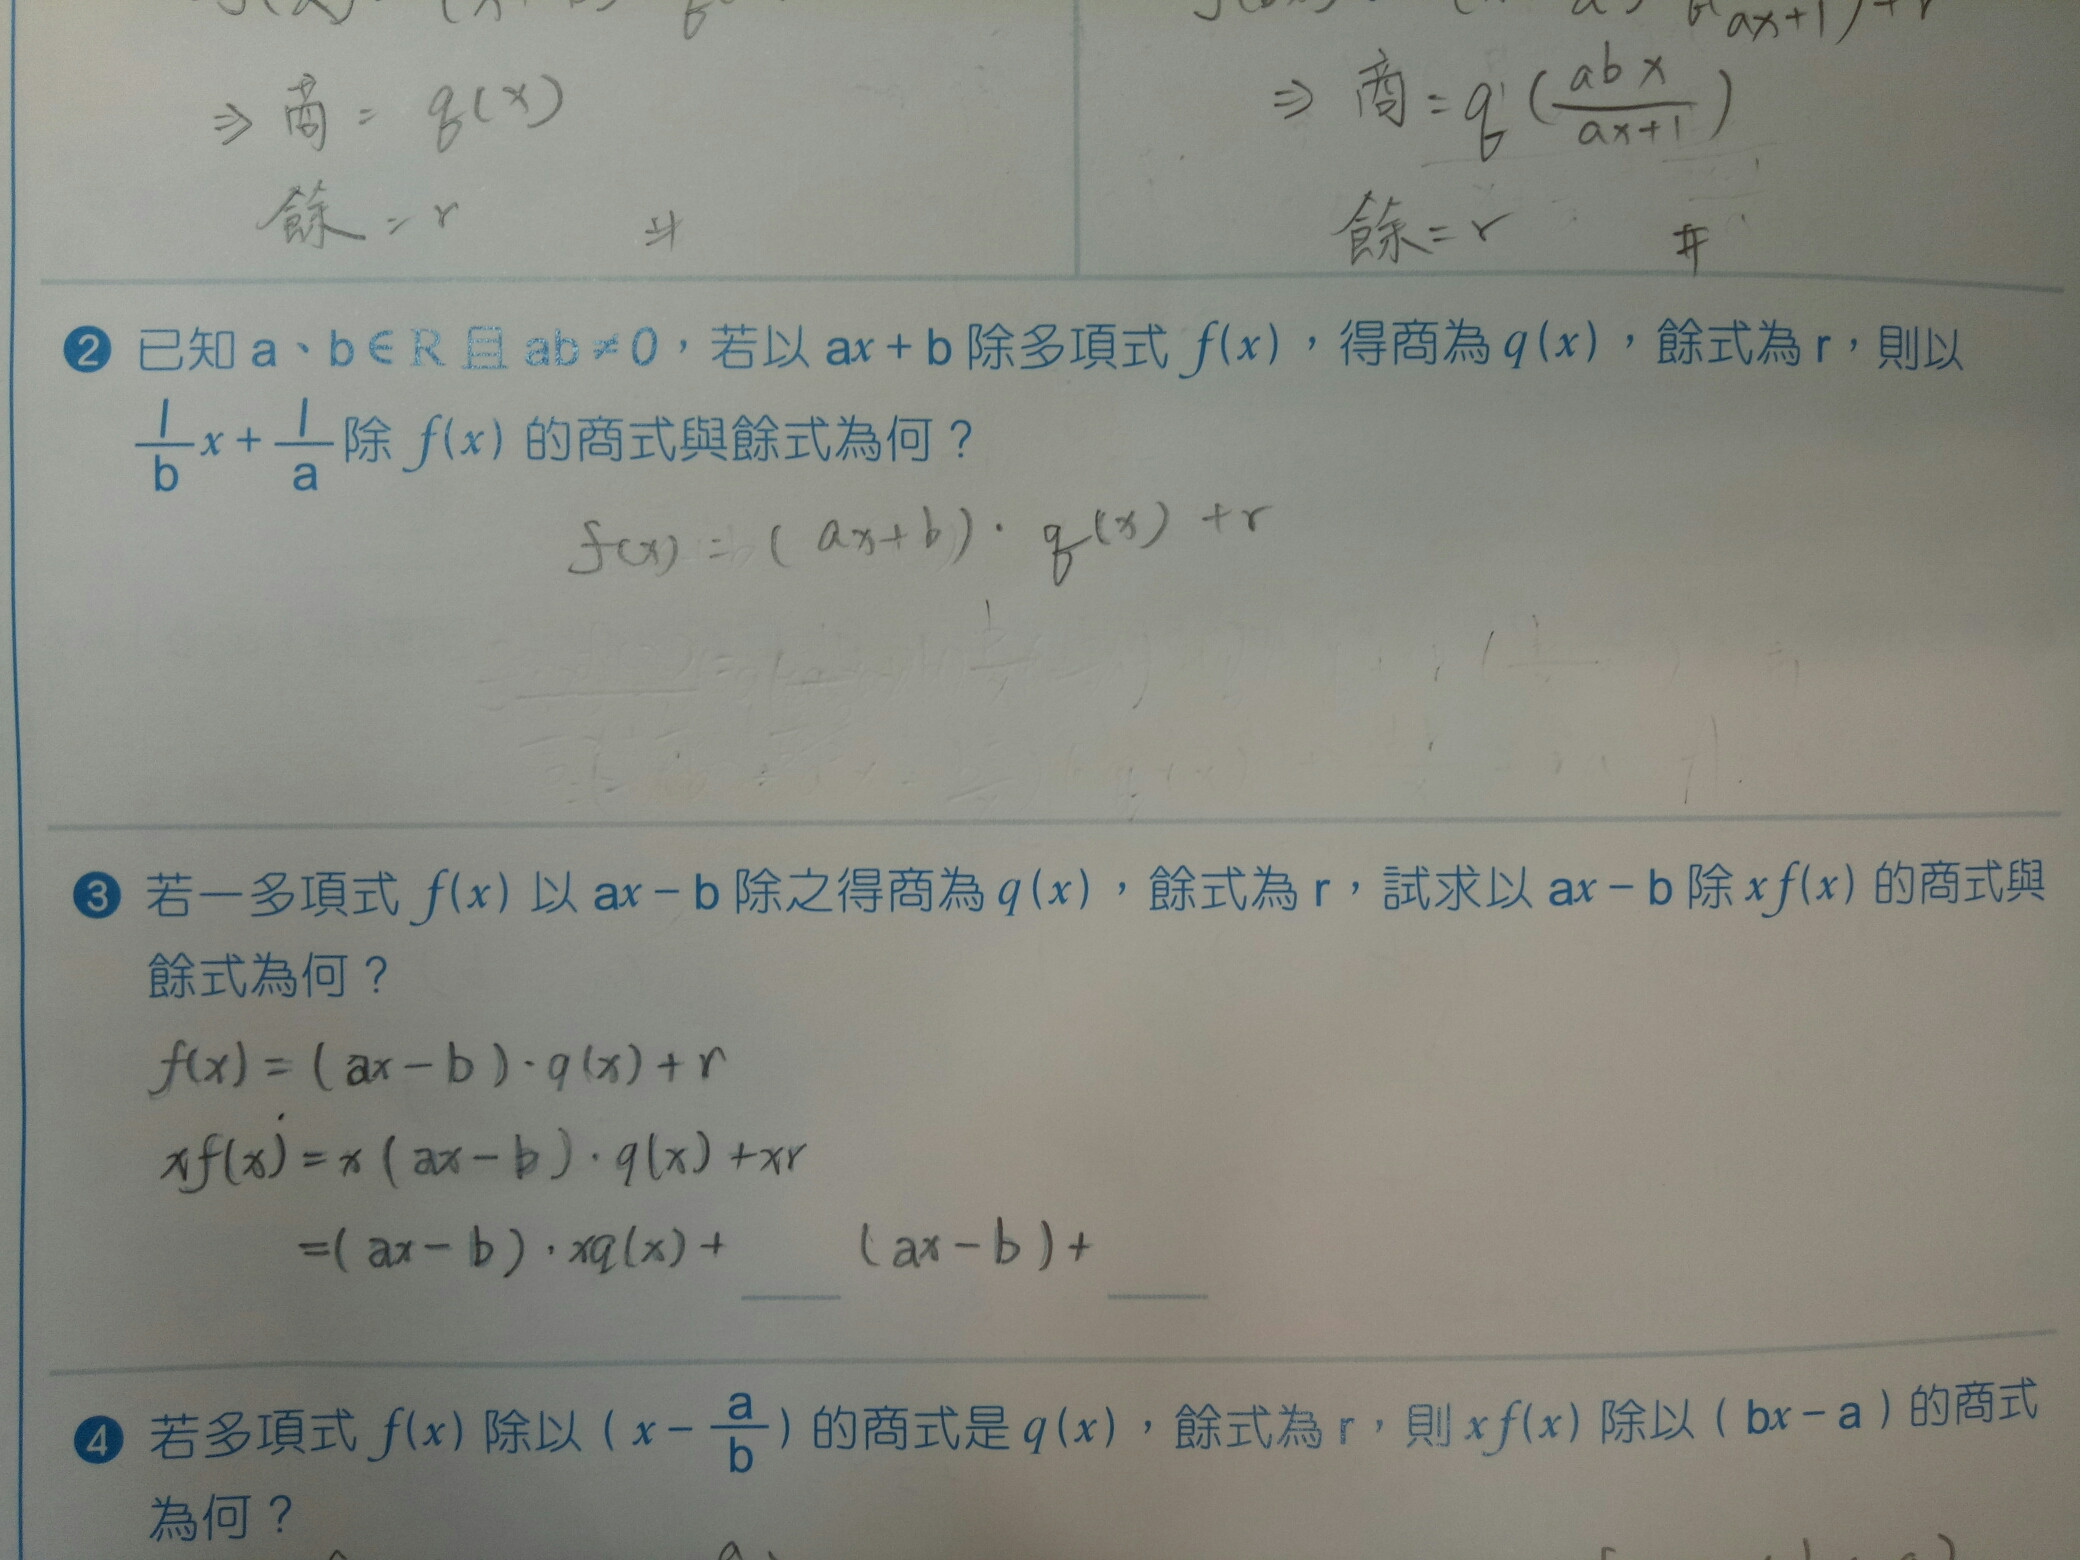 ⇒ 商 = q(x)
餘 = r #
ax+1) + r
⇒ 商 = q(abx/ax+1)
餘 = r #
❷ 已知 a、b∈R 且 ab≠0，若以 ax + b 除多項式 f(x)，得商為 q(x)，餘式為 r，則以
1/b x + 1/a 除 f(x) 的商式與餘式為何？
f(x) = (ax+b)· q(x) + r
❸ 若一多項式 f(x) 以 ax – b 除之得商為 q(x)，餘式為 r，試求以 ax – b 除 xf(x) 的商式與
餘式為何？
f(x) = (ax – b)·q(x) + r
xf(x) = x(ax – b)·q(x) + xr
=(ax – b)·xq(x) + ___ (ax – b) + ___
❹ 若多項式 f(x) 除以 (x – a/b) 的商式是 q(x)，餘式為 r，則 xf(x) 除以 (bx – a) 的商式
為何？